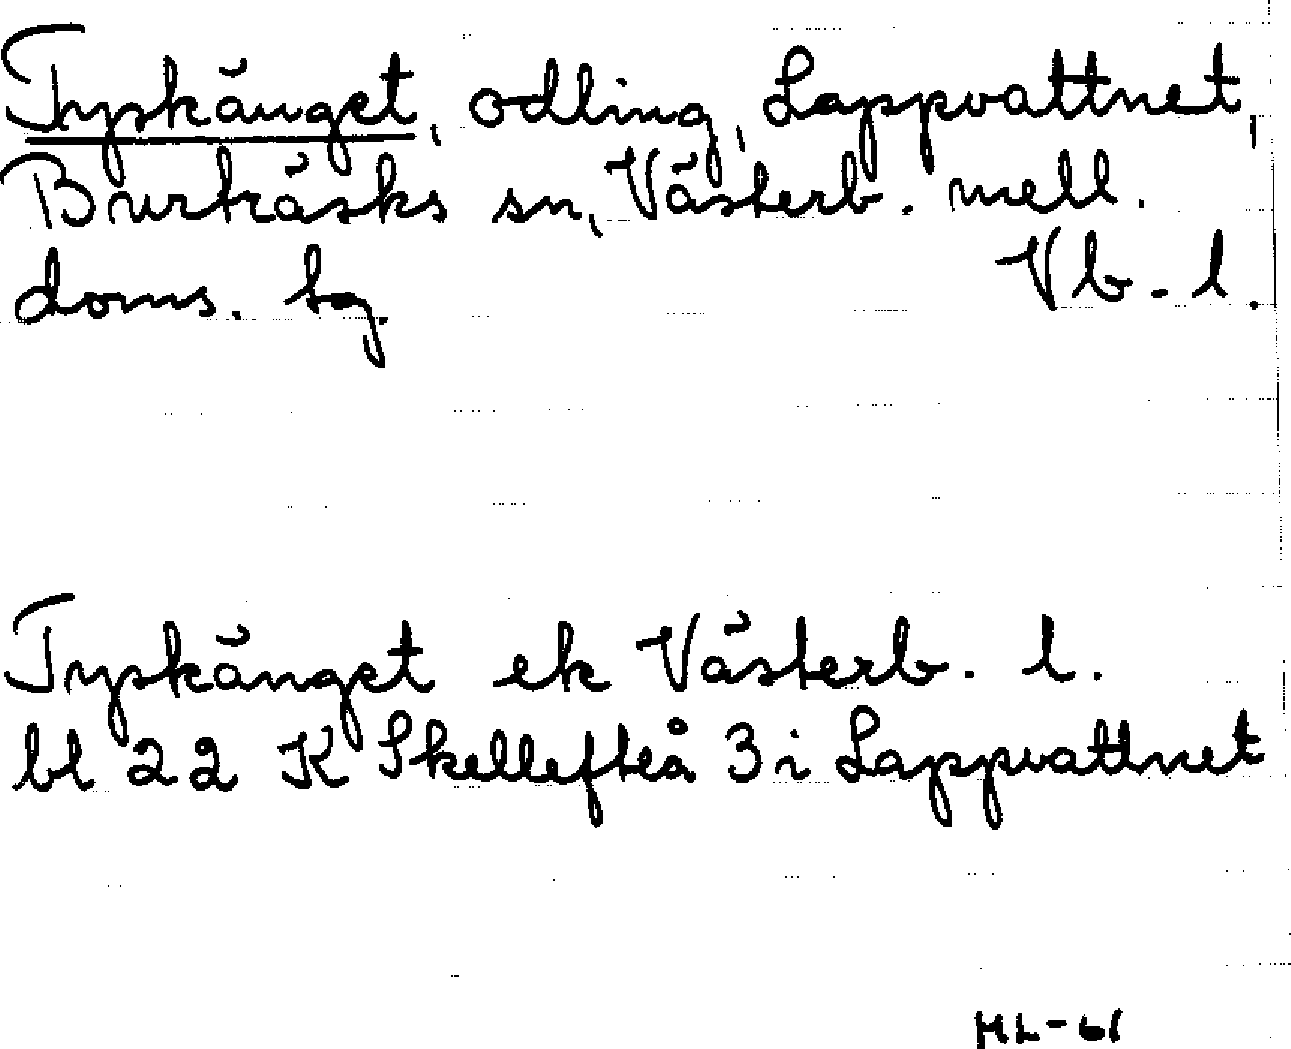 Tyskänget, odling, Lappvattnet,
Burträsks sn, Västerb. mell.
doms. tg. Vb. l.
Tyskänget ek Västerb. l.
bl 22 K Skellefteå 3 i Lappvattnet
HL-61